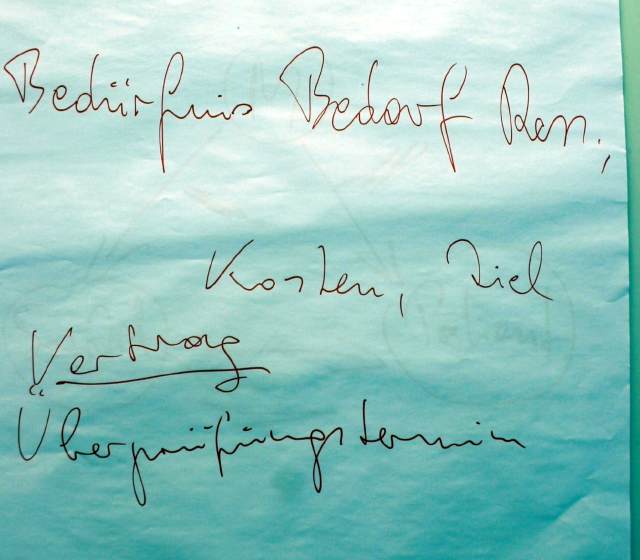 Bedürfnis Bedarf Ren,
Kosten, Ziel
Vertrag
Überprüfungstermin